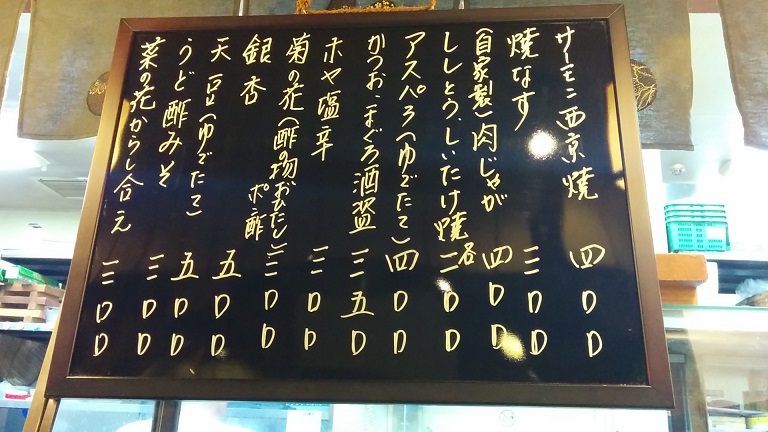 サーモン西京焼 四〇〇
焼なす 三〇〇
(自家製)肉じゃが 四〇〇
ししとう、しいたけ焼 各二〇〇
アスパラ(ゆでたて) 四〇〇
かつお・まぐろ酒盗 三五〇
ホヤ塩辛 三〇〇
菊の花(酢の物おひたし) 三〇〇
ポン酢
銀杏 五〇〇
天豆(ゆでたて) 五〇〇
うど酢みそ 三〇〇
菜の花からし合え 三〇〇